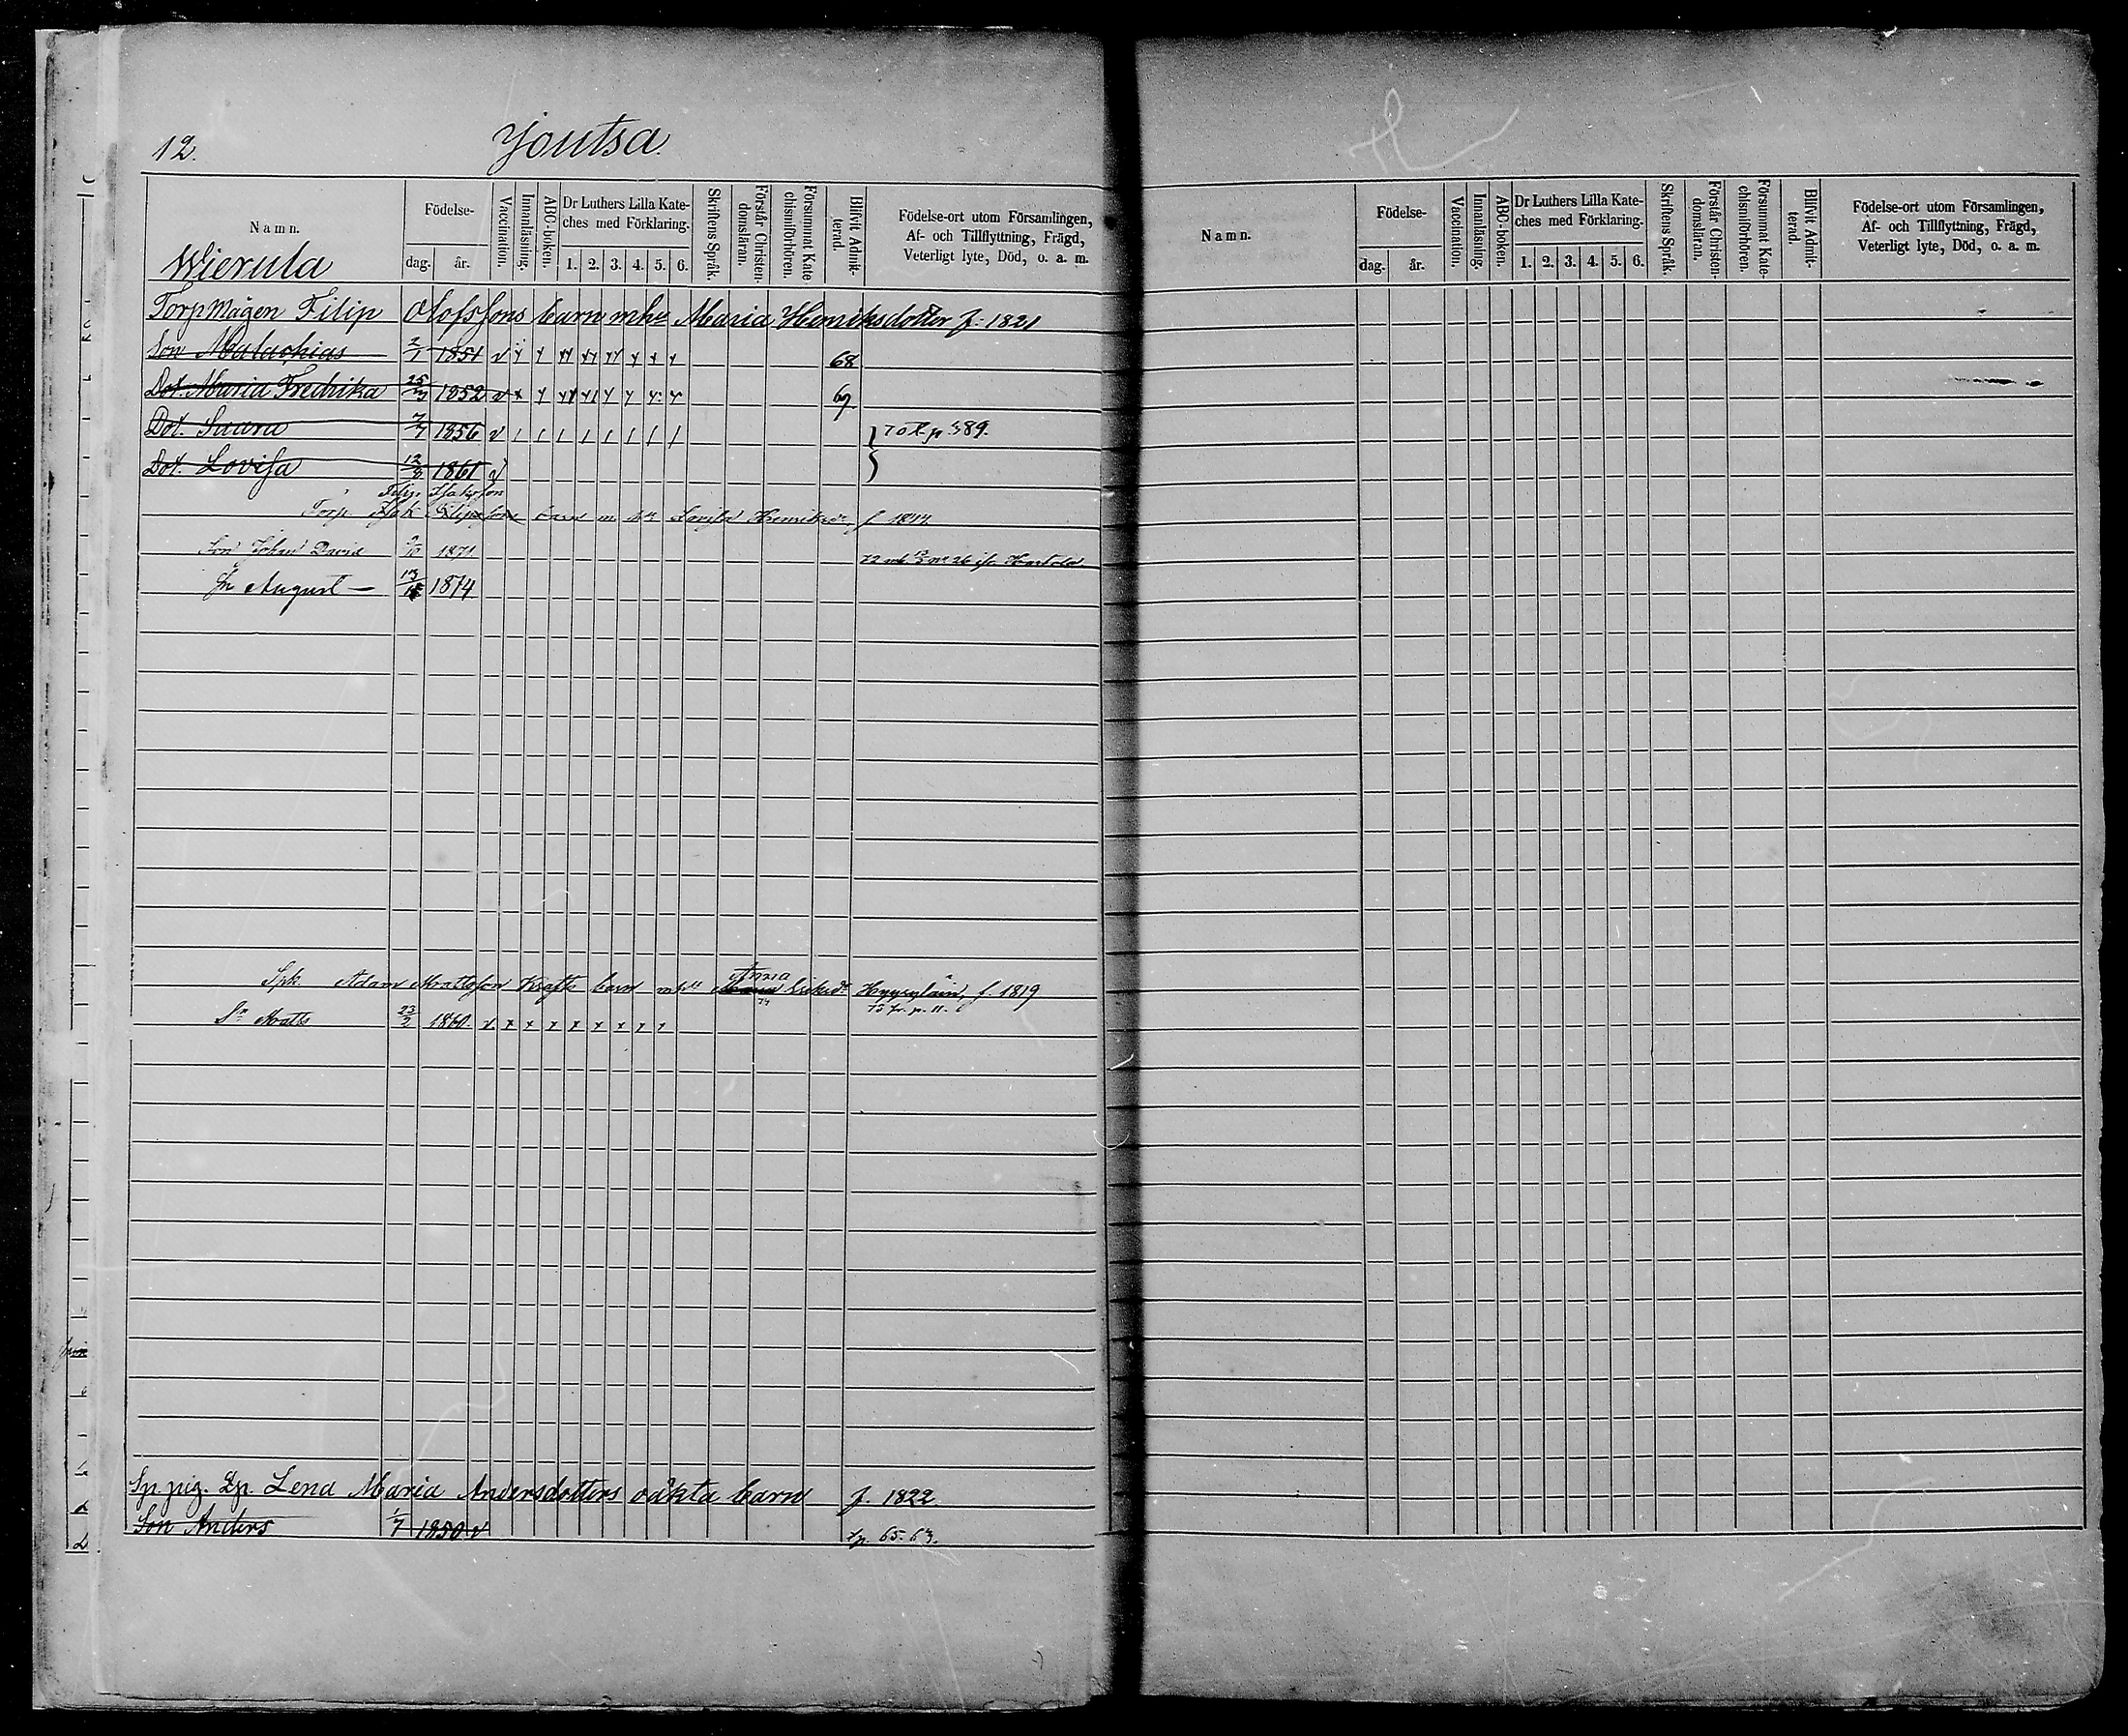 12. Joutsa.
Namn. Födelse- dag. år. Vaccination. Innanläsning. ABC-boken. Dr Luthers Lilla Kateches med Förklaring. 1. 2. 3. 4. 5. 6. Skriftens Språk. Förstår Christendomsläran. Försummat Katechismiförhören. Blifvit Admitterad. Födelse-ort utom Församlingen, Af- och Tillflyttning, Frägd, Veterligt lyte, Död, o. a. m.
Wierula
Torpmågen Filip Olofssons barn mhu Maria Henriksdotter f. 1821
Son Malachias 2/1 1851 v 68
Dot. Maria Fredrika 25/7 1852 v 69
Dot. Saara 7/7 1856 v } 70 k. p. 389.
Dot. Lovisa 12/8 1861 v }
Filip Isaksson
Torp. Isak Filipsson barn m. hu Lovisa Henriksdr f 1847
Son Johan David 9/10 1871 72 mb 13/3 nr 26 ifr. Hartola
Sn August — 13/11 1874
Spk. Adam Mattsson Krafts barn mhu Maria Anna Eriksdr Hyyryläin, f. 1819
74 75 fr. p. 11.
Sn Matts 23/2 1860. v. x x x x x x x x
Sp. pig. Lena Maria Andersdotters oäkta barn f. 1822
Son Anders 1/7 1850 v 65. 63.
Namn. Födelse- dag. år. Vaccination. Innanläsning. ABC-boken. Dr Luthers Lilla Kateches med Förklaring. 1. 2. 3. 4. 5. 6. Skriftens Språk. Förstår Christendomsläran. Försummat Katechismiförhören. Blifvit Admitterad. Födelse-ort utom Församlingen, Af- och Tillflyttning, Frägd, Veterligt lyte, Död, o. a. m.